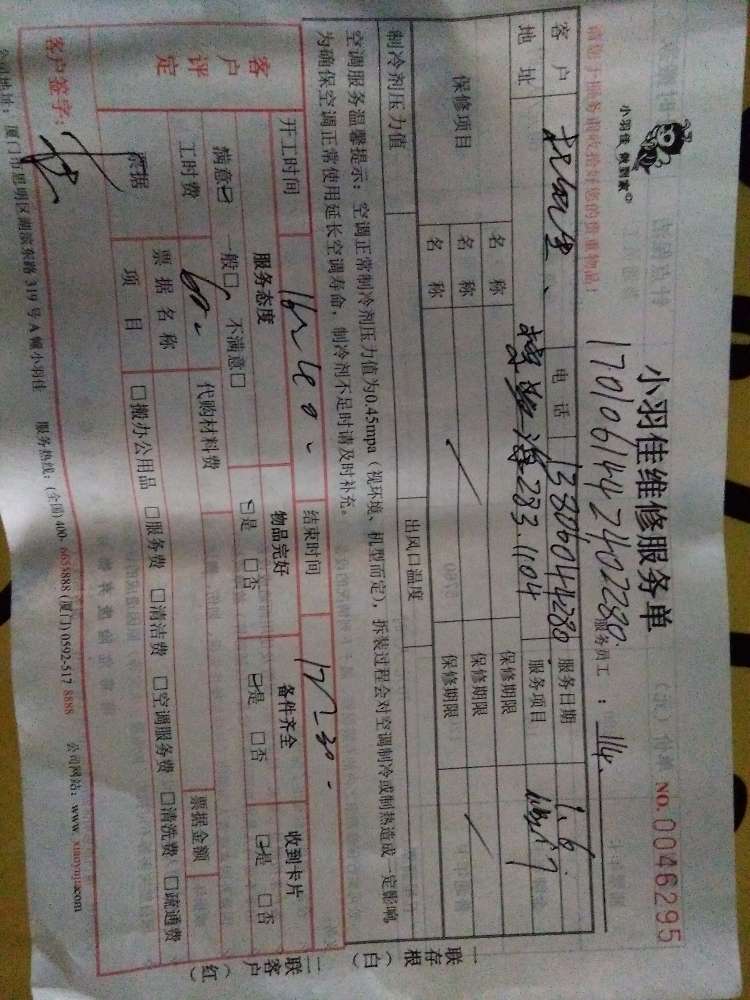 小羽佳 做到家
小羽佳维修服务单
NO. 0046295
请您于服务前收拾好您的贵重物品!
1701061442402280
服务员工 : 114.
客户 电话 13806044280 服务日期 1.6.
地址 283.1104 服务项目
保修项目 名称 保修期限
名称 保修期限
名称 保修期限
制冷剂压力值 出风口温度
空调服务温馨提示: 空调正常制冷剂压力值为0.45mpa (视环境、机型而定), 拆装过程会对空调制冷或制热造成一定影响
为确保空调正常使用延长空调寿命, 制冷剂不足时请及时补充。
开工时间 16:40 结束时间 17:30
客户评定 服务态度 物品完好 备件齐全 收到卡片
满意☑ 一般□ 不满意□ ☑是 □否 ☑是 □否 ☑是 □否
工时费 60 代购材料费
票据 票据名称 票据金额
项目 □搬办公用品 □服务费 □清洁费 □空调服务费 □清洗费 □疏通费
客户签字:
公司地址: 厦门市思明区湖滨东路 319 号 A 幢小羽佳 服务热线: (全国) 400-6655888 (厦门) 0592-517 8888 公司网站: www.xiaoyujia.com
一联存根 (白)
二联客户 (红)